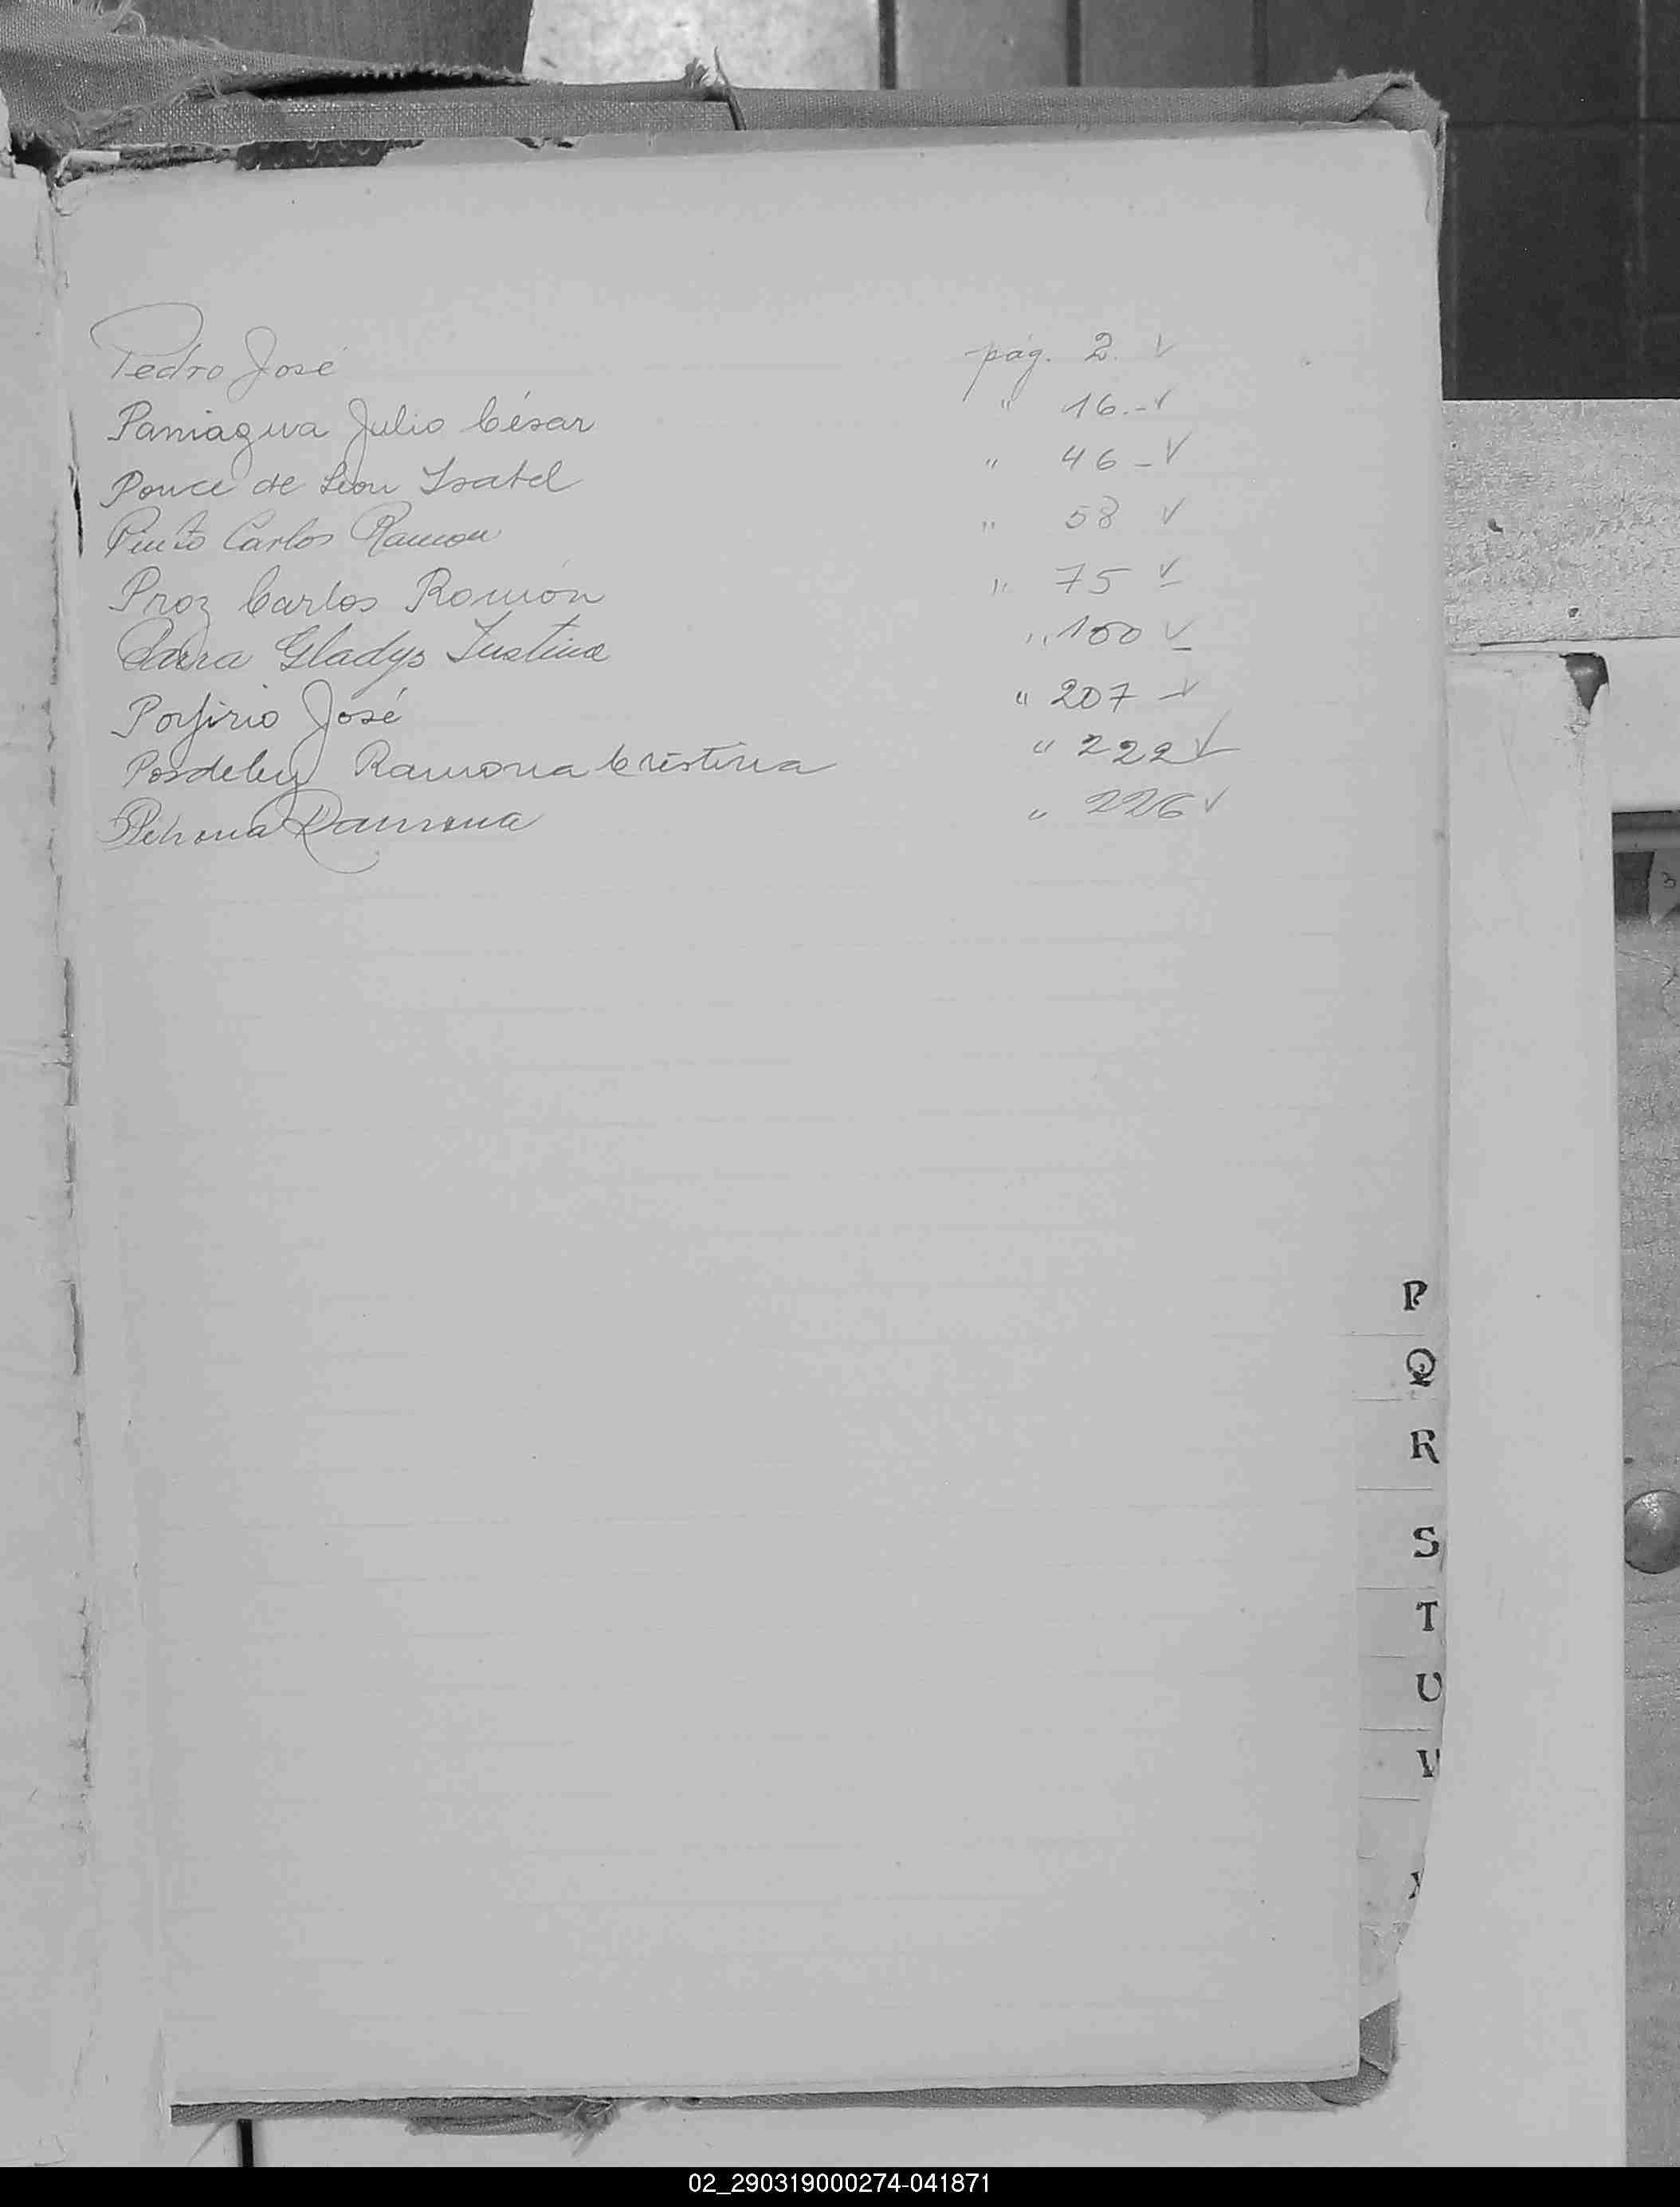 Pedro José pág. 2. ✓
Paniagua Julio César " 16.-✓
Ponce de León Isabel " 46-✓
Pinto Carlos Ramon " 58 ✓
Proz Carlos Ramón " 75 ✓
Parra Gladys Justina " 100 ✓
Porfirio José " 207 -✓
Ramona Cristina " 222 ✓
Petrona Ramona " 226 ✓
P
Q
R
S
T
U
V
02_290319000274-041871